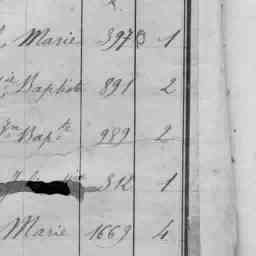 Marie 3970 1
Baptiste 891 2
Bapte 989 2
312 1
Marie 1669 4